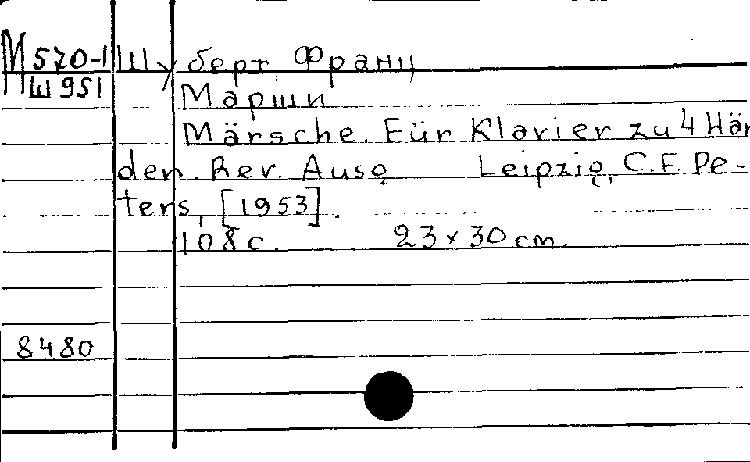 М 570-1 Шуберт Франц
Ш 951 Марши
Märsche. Für Klavier zu 4 Hän
den. Rev. Ausg Leipzig, C.F. Pe-
ters, [1953].
108 с. 23 x 30 cm.
8480